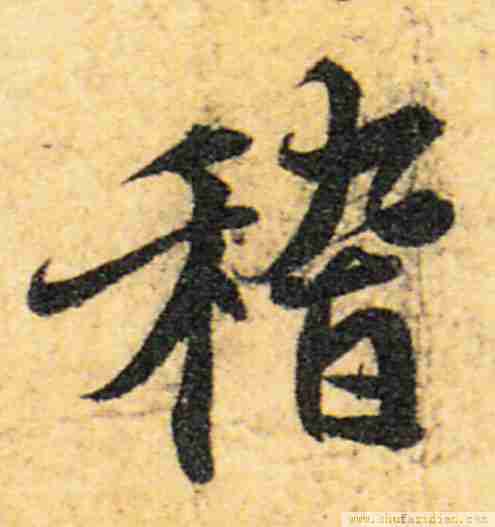 稽
www.shufazidian.com